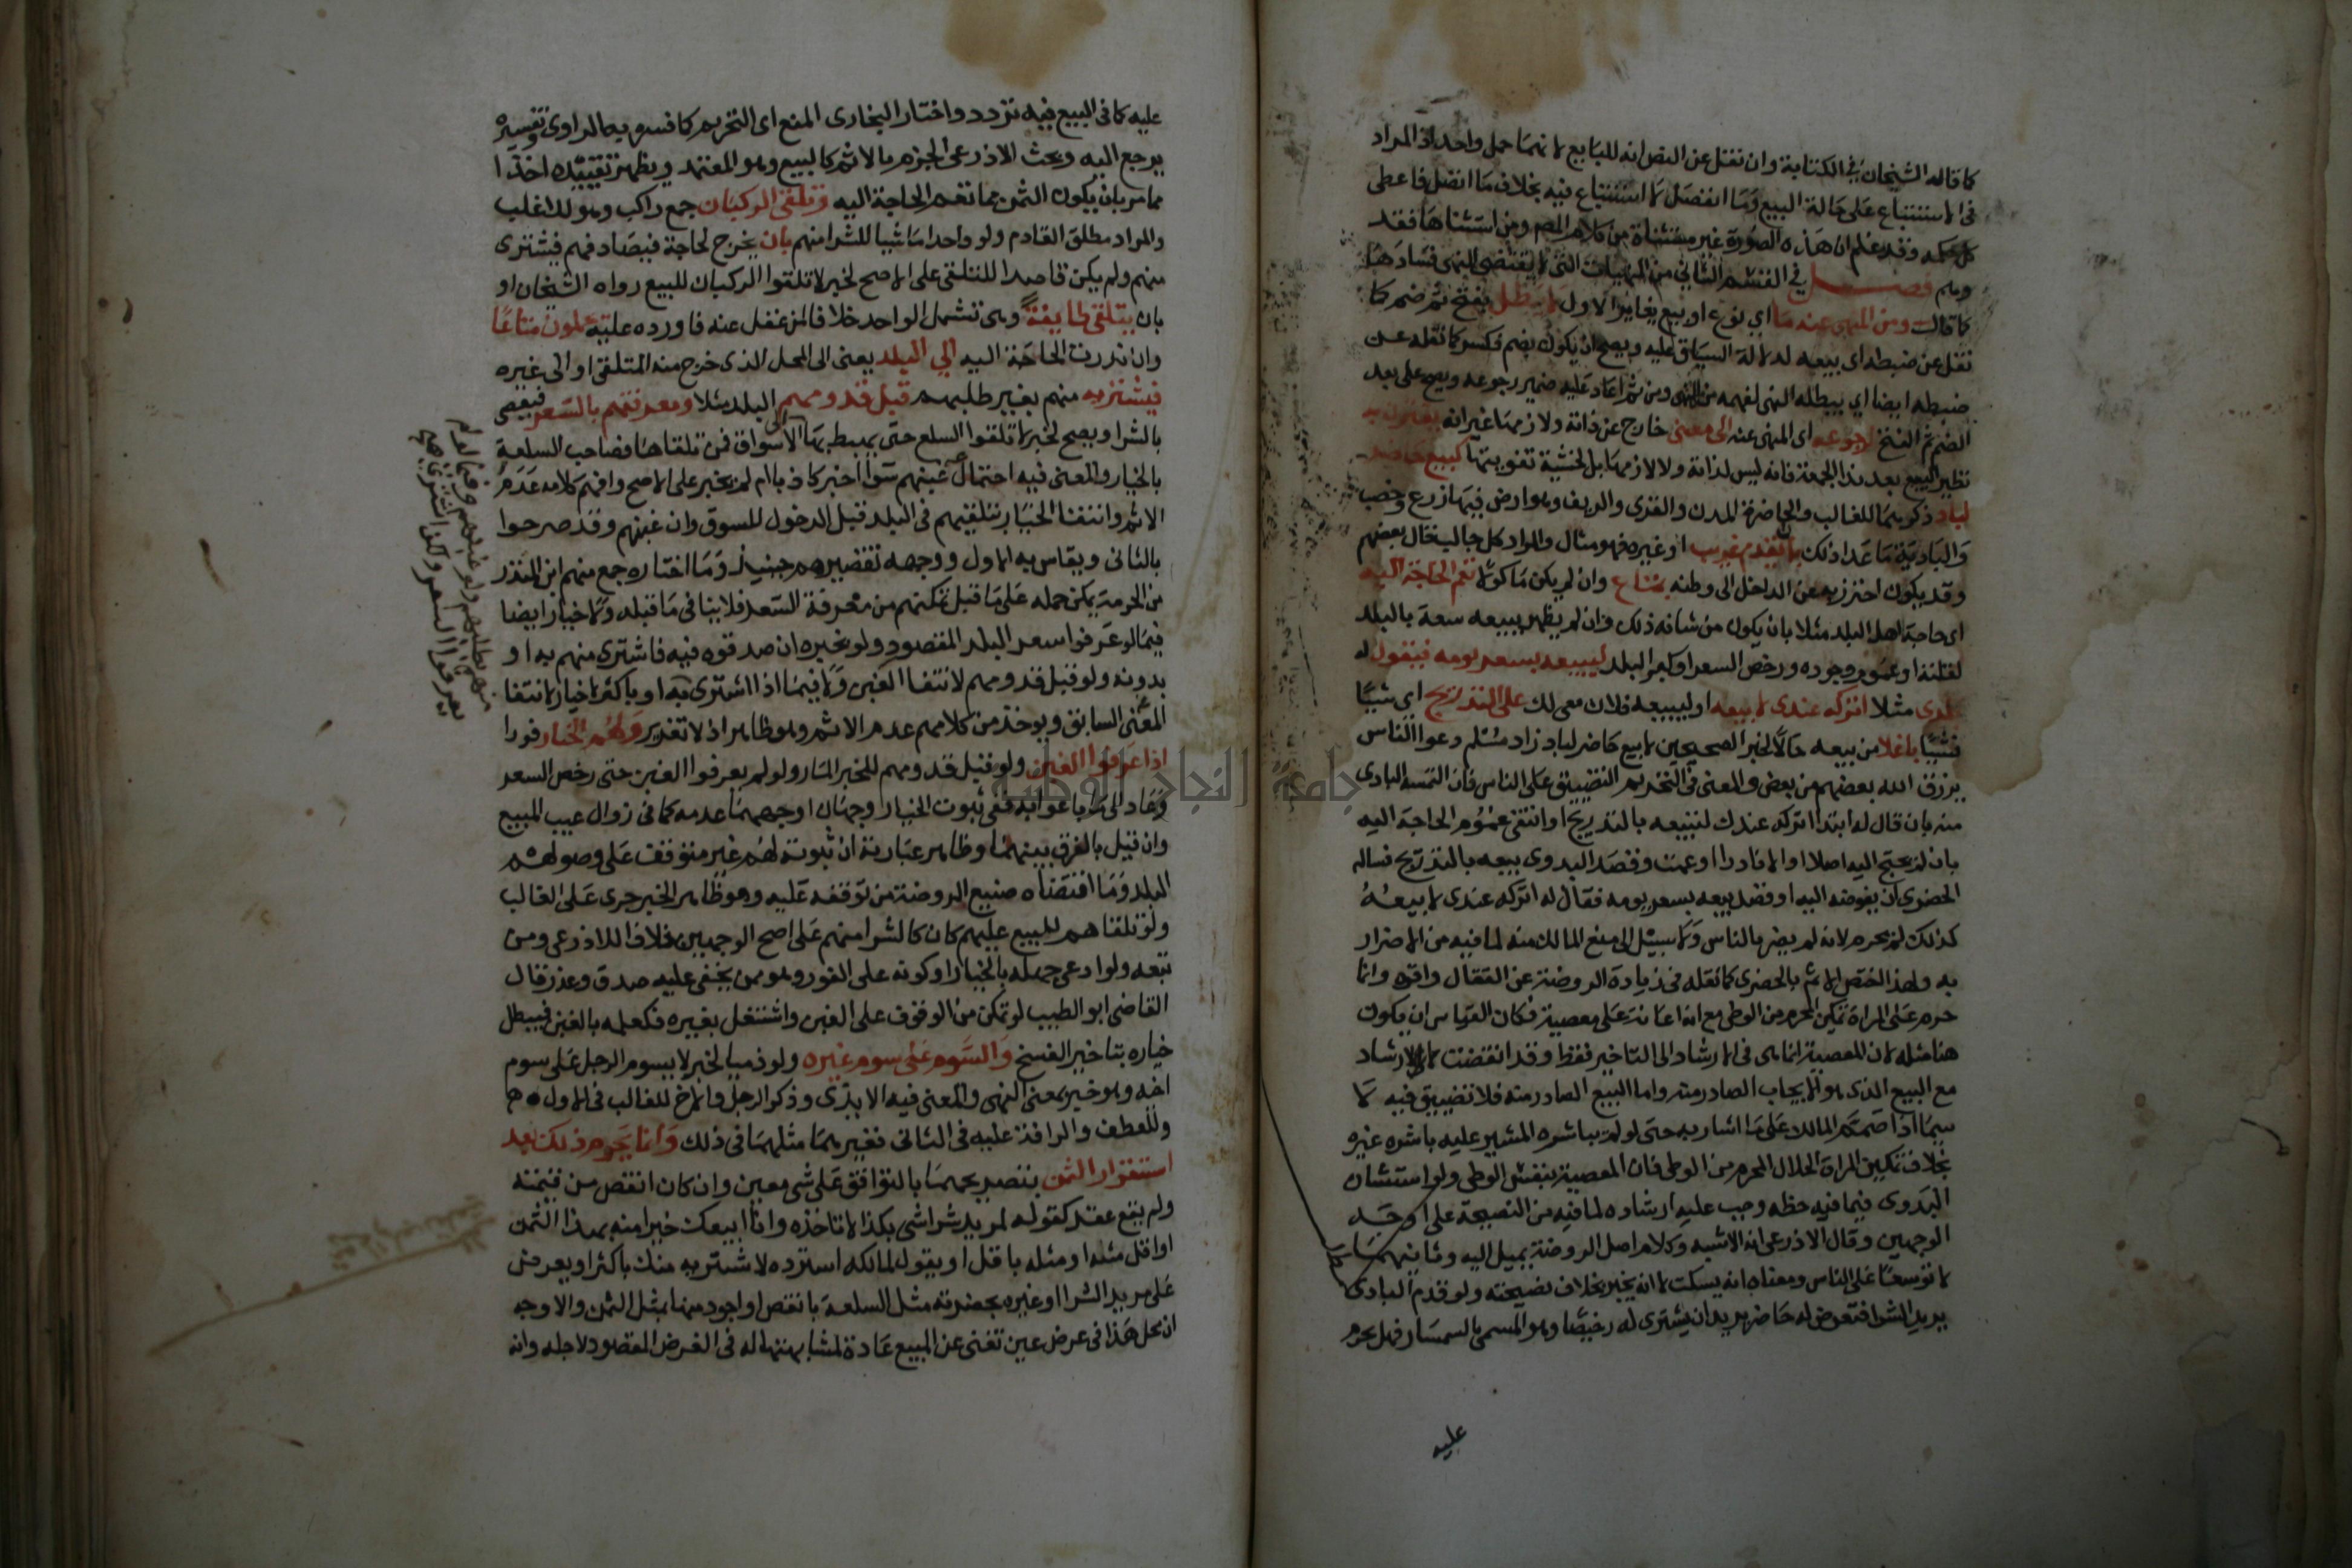 كما قاله الشيخان في الكتابة وان نقل عن النص انه للبايع لانهما حمل واحد اذ المراد
في الاستتباع على حالة البيع وما انفصل لا استتباع فيه بخلاف ما اتصل فاعطى
كل حكمه وقد علم ان هذه الصورة غير مستثناة من كلام المص ومن استثناها فقد
وهم فصل في القسم الثاني من المنهيات التي لا يقتضى النهى فسادها
كما قالت ومن المنهى عنه ما اي نوع او بيع يغاير الاول لا يبطل بفتح ثم ضم كما
نقل عن ضبطه اى بيعه لدلالة السياق عليه ويصح ان يكون بضم فكسر كما نقله عن
ضبطه ايضا اي يبطله النهى لفهمه من المنهى ومن ثم اعاد عليه ضمير رجوعه ويصح على بعد
الضم ثم الفتح لرجوعه اى المنهى عنه الى معنى خارج عن ذاته ولازمها غير انه يقترن به
نظير البيع بعد ندا الجمعة فانه ليس لذاته ولا لازمها بل لخشية تفويتها كبيع حاضر
لباد ذكرهما للغالب والحاضرة المدن والقرى والريف وهو ارض فيها زرع وخصب
والبادية ما عدا ذلك بان يقدم غريب او غيره فهو مثال والمراد كل جالب فقال بعضهم
وقد يكون احترز به عن الداخل الى وطنه بمتاع وان لم يكن ماكولا تعم الحاجة اليه
اى حاجة اهل البلد مثلا بان يكون من شانه ذلك وان لم يظهر ببيعه سعة بالبلد
لقلته او عموم وجوده ورخص السعر او كبر البلد ليبيعه بسعر يومه فيقول له
بلدى مثلا اتركه عندى لابيعه او ليبيعه فلان معى لك على التدريج اي شيا
فشيا باغلا من بيعه حالا لخبر الصحيحين لا يبيع حاضر لباد زاد مسلم دعوا الناس
يرزق الله بعضهم من بعض والمعنى فى التحريم التضييق على الناس فان التمسه البادى
منه بان قال له ابتدا اتركه عندك لتبيعه بالتدريج او انتفى عموم الحاجة اليه
بان لم يحتج اليه اصلا او الا نادرا او عمت وقصد البدوى بيعه بالتدريج فساله
الحضرى ان يفوضه اليه او قصد بيعه بسعر يومه فقال له اتركه عندى لابيعه
كذلك لم يحرم لانه لم يضر بالناس ولا سبيل الى منع المالك منه لما فيه من الاضرار
به ولهذا اختص الاثم بالحضرى كما نقله في زيادة الروضة عن القفال واقره وانما
حرم على المراة تمكين المحرم من الوطى مع انه اعانة على معصية فكان القياس ان يكون
هنا مثله لان المعصية انما هى فى الارشاد الى التاخير فقط وقد انقضت لا الارشاد
مع البيع الذى هو الايجاب الصادر منه واما البيع الصادر منه فلا تضييق فيه لا
سيما اذا صمم المالك على ما اشار به حتى لو لم يباشره المشير عليه باشره غيره
بخلاف تمكين المراة الحلال المحرم من الوطى فان المعصية بنفس الوطى ولو استشار
البدوى فيما فيه حظه وجب عليه ارشاده لما فيه من النصيحة على اوجه
الوجهين وقال الاذرعى انه الاشبه وكلام اصل الروضة يميل اليه وثانيهما
لا توسعا على الناس ومعناه انه يسكت لا انه يخبر بخلاف نصيحته ولو قدم البادى
يريد الشرا فتعرض له حاضر يريد ان يشترى له رخيصا وهو المسمى بالسمسار فهل يحرم
عليه
عليه كما فى البيع فيه تردد واختار البخارى المنع اى التحريم كما فسره به الراوى وتفسيره
يرجع اليه وبحث الاذرعى الجزم بالاثم كالبيع وهو المعتمد ويظهر تقييده اخذا
مما مر بان يكون الثمن مما تعم الحاجة اليه وتلقى الركبان جمع راكب وهو للاغلب
والمراد مطلق القادم ولو واحدا ماشيا للشرا منهم بان يخرج لحاجة فيصادفهم فيشترى
منهم ولم يكن قاصدا للتلقى على الاصح لخبر لا تلقوا الركبان للبيع رواه الشيخان او
بان يتلقى طايفة وهى تشمل الواحد خلافا لمن غفل عنه فاورده عليه يحملون متاعا
وان ندرت الحاجة اليه الي البلد يعنى الى المحل الذى خرج منه المتلقى او الى غيره
فيشتريه منهم بغير طلبهم قبل قدومهم البلد مثلا ومعرفتهم بالسعر فيعصى
بالشرا ويصح لخبر لا تلقوا السلع حتى يهبط بها الى الاسواق فمن تلقاها فصاحب السلعة
بالخيار والمعنى فيه احتمال غبنهم سوا اخبر كاذبا ام لم يخبر على الاصح وافهم كلامه عدم
الاثم وانتفا الخيار بتلقيهم فى البلد قبل الدخول للسوق وان غبنهم وقد صرحوا
بالثانى ويقاس به الاول ووجهه تقصيرهم حينيذ وما اختاره جمع منهم ابن المنذر
من الحرمة يمكن حمله على ما قبل تمكنهم من معرفة السعر فلا ينافى ما قبله ولا خيار ايضا
فيما لو عرفوا سعر البلد المقصود ولو بخبره ان صدقوه فيه فاشترى منهم به او
بدونه ولو قبل قدومهم لانتفا الغبن ولا فيما اذا اشترى به او باكثر لا خيار لانتفا
المعنى السابق ويوخذ من كلامهم عدم الاثم وهو ظاهر اذ لا تغرير ولهم الخيار فورا
اذا عرفوا الغبن ولو قبل قدومهم للخبر المار ولو لم يعرفوا الغبن حتى رخص السعر
وعاد الى ما باعوا به ففى ثبوت الخيار وجهان اوجههما عدمه كما فى زوال عيب المبيع
وان قيل بالفرق بينهما وظاهر عبارته ان ثبوته لهم غير متوقف على وصولهم
البلد وما اقتضاه صنيع الروضة من توقفه عليه وهو ظاهر الخبر جرى على الغالب
ولو تلقاهم للبيع عليهم كان كالشرا منهم على اصح الوجهين خلافا للاذرعى ومن
تبعه ولو ادعى جهله بالخيار او كونه على الفور وهو ممن يخفى عليه صدق وعذر قال
القاضى ابو الطيب لو تمكن من الوقوف على الغبن واشتغل بغيره فكعلمه بالغبن فيبطل
خياره بتاخير الفسخ والسوم على سوم غيره ولو ذميا لخبر لا يسوم الرجل على سوم
اخيه وهو خبر بمعنى النهى والمعنى فيه الايذى وذكر الرجل والاخ للغالب فى الاول
وللعطف والرافة عليه فى الثانى فغيرهما مثلهما فى ذلك وانما يحرم ذلك بعد
استقرار الثمن بتصريحهما بالتوافق على شى معين وان كان انقص من قيمته
ولم يقع عقد كقوله لمريد شرا شى بكذا لا تاخذه وانا ابيعك خيرا منه بهذا الثمن
او اقل منه او مثله باقل او يقول لمالكه استرده لاشتريه منك باكثر او يعرض
على مريد الشرا او غيره بحضرته مثل السلعة بانقص او اجود منها بمثل الثمن والاوجه
ان محل هذا فى عرض عين تغنى عن المبيع عادة لمشابهتها له فى الغرض المقصود لاجله وانه
جامعة النجاح الوطنية